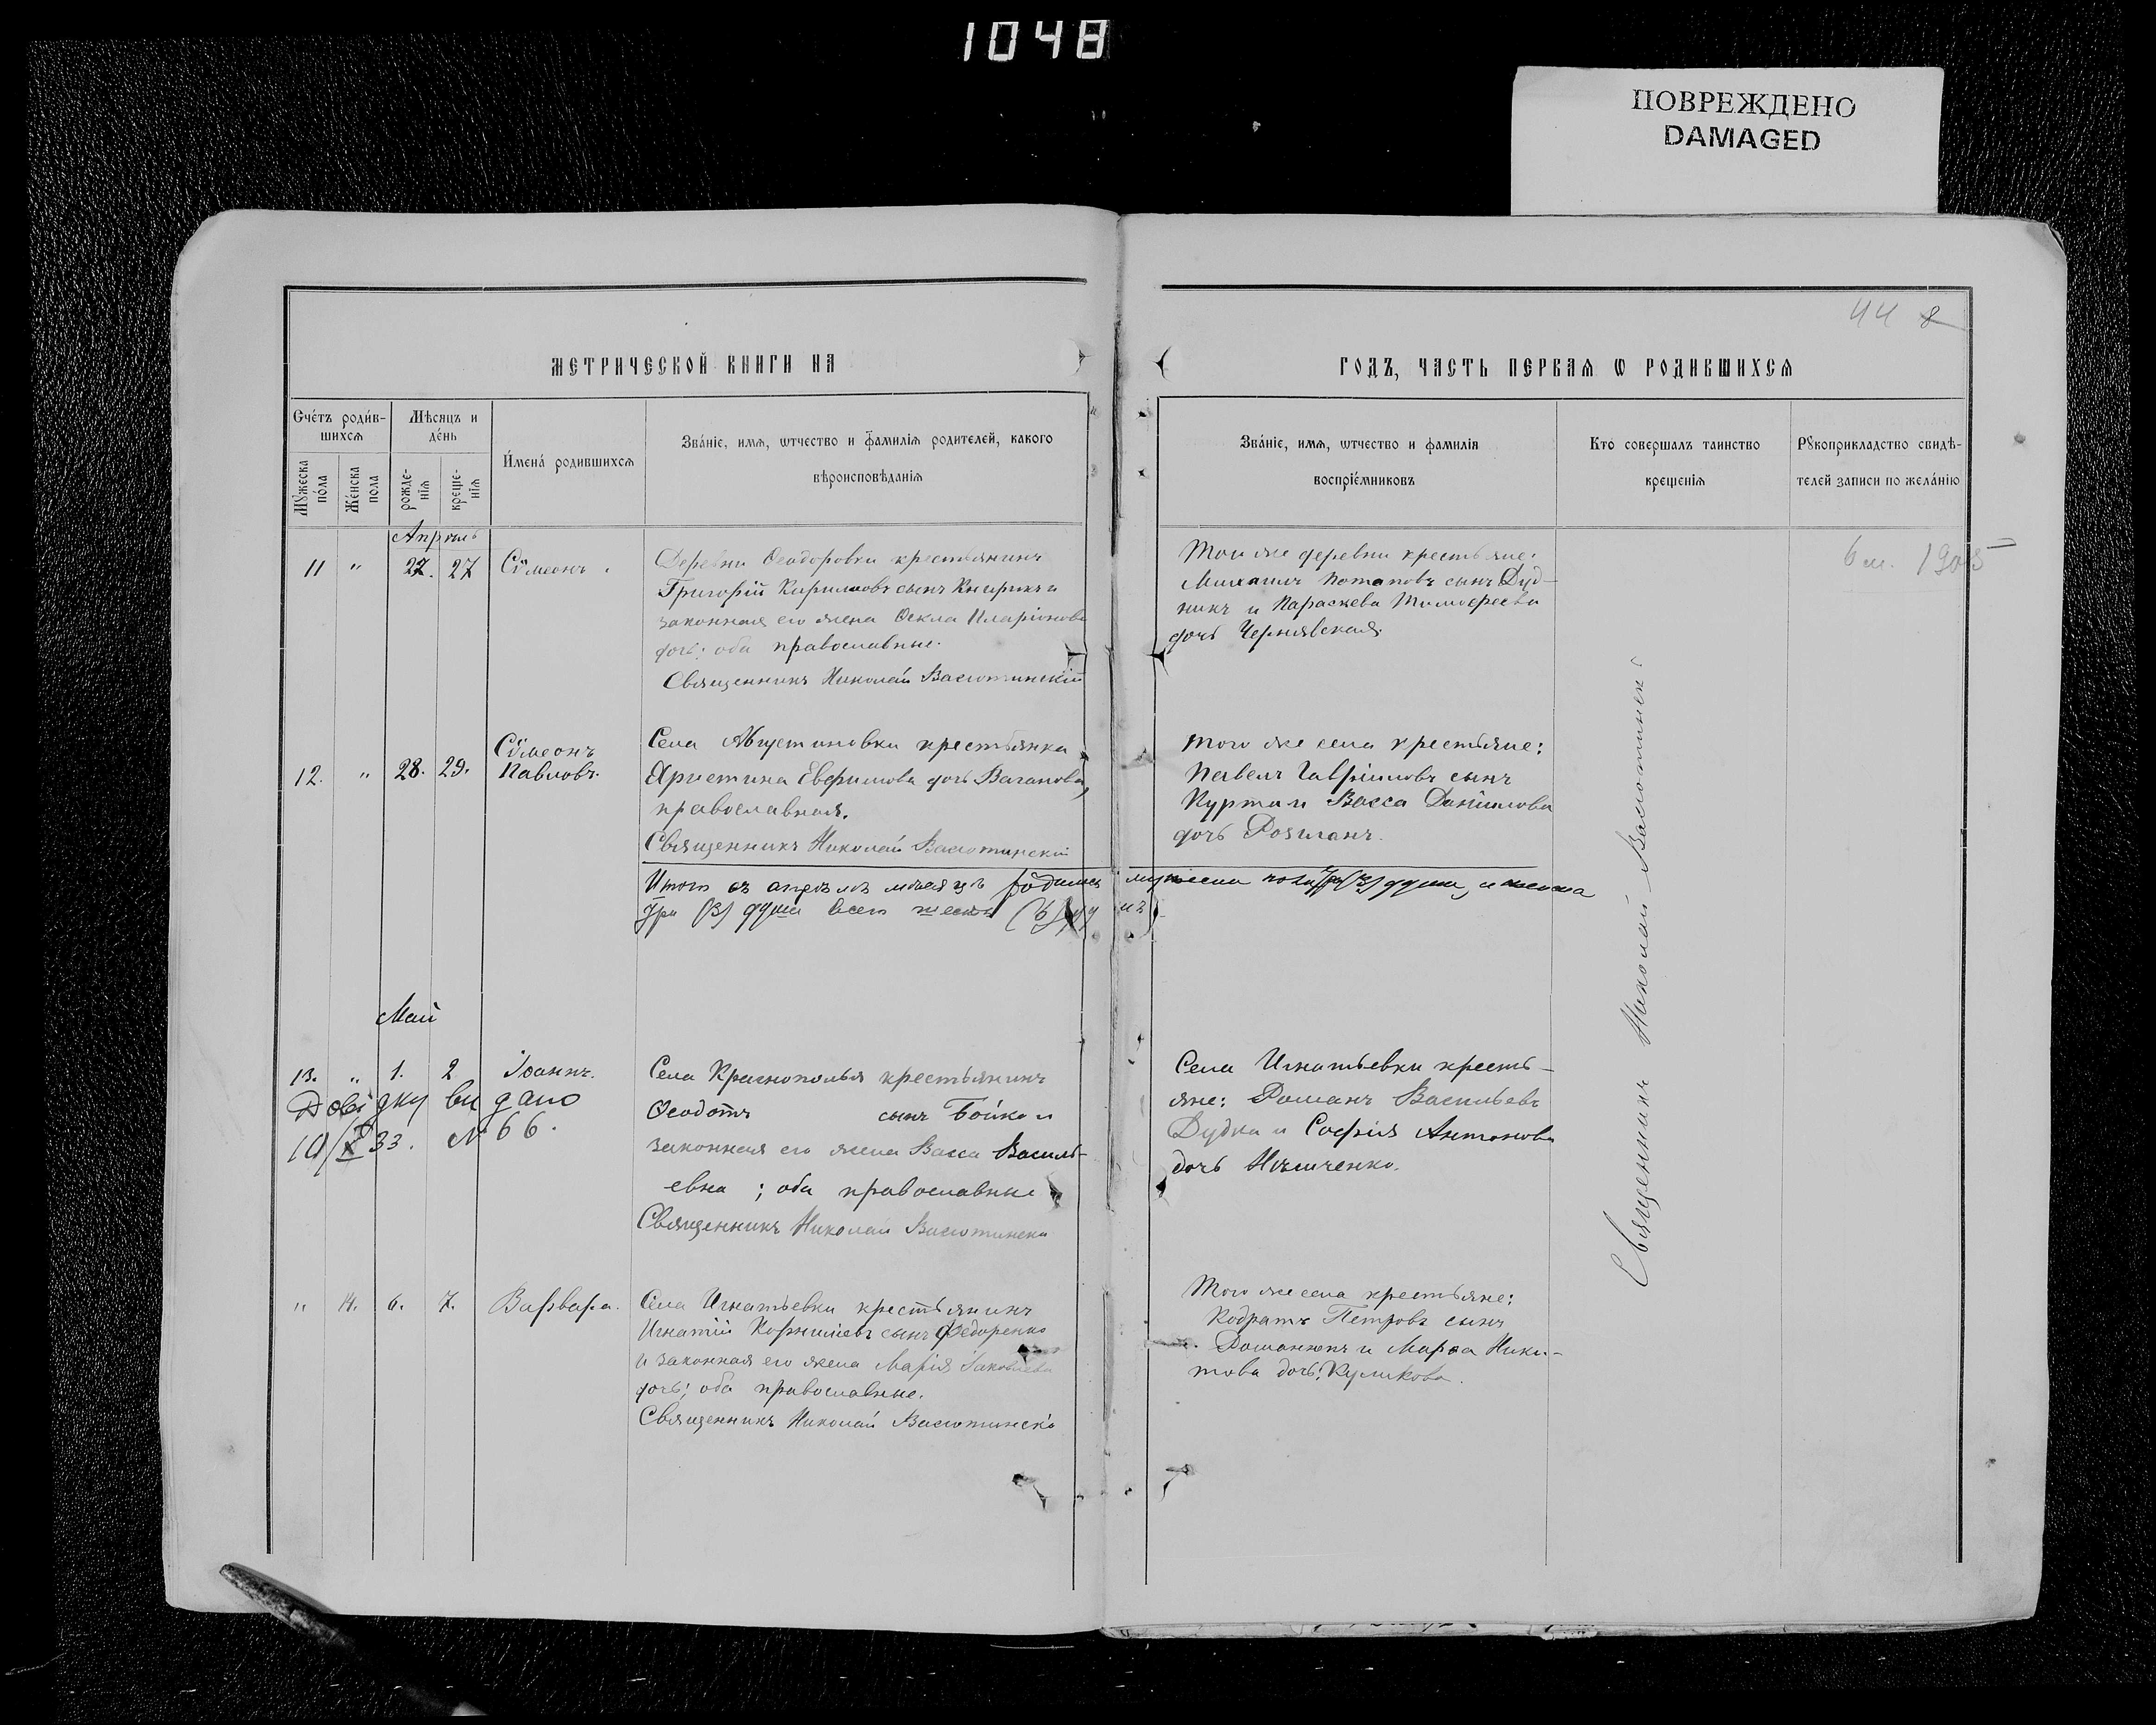 1048
ПОВРЕЖДЕНО
DAMAGED
44 8
МЕТРИЧЕСКОЙ КНИГИ НА
ГОДЪ, ЧАСТЬ ПЕРВАЯ Ѡ РОДИВШИХСЯ
Счетъ родив-
шихся
Мѣсяцъ и
день
Мужеска
пола
Женска
пола
рожде-
нія
креще-
нія
Имена родившихся
Званіе, имя, ѡтчество и фамилія родителей, какого
вѣроисповѣданія
Званіе, имя, ѡтчество и фамилія
воспріемниковъ
Кто совершалъ таинство
крещенія
Рукоприкладство свидѣ-
телей записи по желанію
Апрѣль
11 " 27. 27 Сѵмеонъ.
Деревни Ѳеодоровки крестьянинъ
Григорій Кириловъ сынъ и
законная его жена Ѳекла Иларіонова
дочь; оба православные.
Священникъ Николай Васютинскій
Той же деревни крестьяне:
Михаилъ Потаповъ сынъ Дуд-
никъ и Параскева Тимоѳеева
дочь Чернявская.
6 м. 1905
12. " 28. 29. Сѵмеонъ
Павловъ.
Села Августиновки крестьянка
Христина Евфимова дочь Ваганова,
православная.
Священникъ Николай Васютинскій
Того же села крестьяне:
Павелъ Гавріиловъ сынъ
Курта и Васса Даніилова
дочь
Итого въ апрѣлѣ мѣсяцѣ родилось мужеска пола три (3) души, и женска
три (3) души всего шесть (6) душъ
Май
13. " 1. 2 Іоаннъ.
Довідку видано
10/X 33. № 66.
Села Краснополья крестьянинъ
Ѳеодотъ сынъ Бойко и
законная его жена Васса Василь-
евна ; оба православные
Священникъ Николай Васютинскій
Села Игнатьевки кресть-
яне: Романъ Васильевъ
Дудка и Софія Антонова
дочь
" 14. 6. 7. Варвара.
Села Игнатьевки крестьянинъ
Игнатій Корниліевъ сынъ Федоренко
и законная его жена Марія Іаковлева
дочь; оба православные.
Священникъ Николай Васютинскій
Того же села крестьяне:
Кодратъ Петровъ сынъ
Романюкъ и Марѳа Ники-
това дочь Куликова.
Священникъ Николай Васютинскій